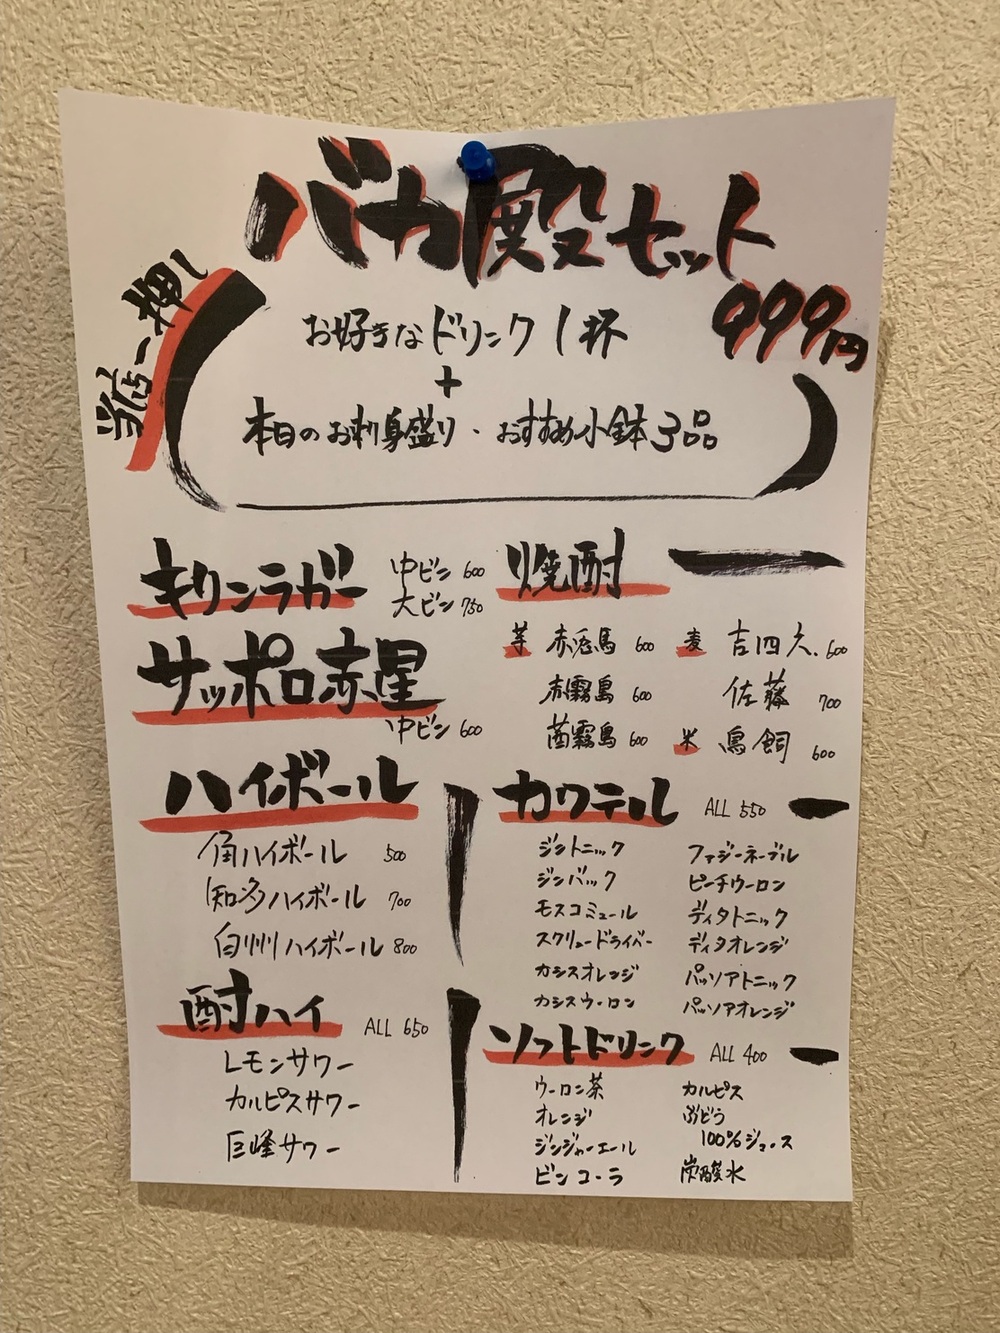 バカ殿セット
999円
当店一押し
お好きなドリンク1杯
+
本日のお刺身盛り・おすすめ小鉢3品
キリンラガー 中ビン 600
大ビン 750
サッポロ赤星
中ビン 600
ハイボール
角ハイボール 500
知多ハイボール 700
白州ハイボール 800
酎ハイ ALL 650
レモンサワー
カルピスサワー
巨峰サワー
焼酎
芋 赤兎馬 600 麦 吉四六 600
赤霧島 600 佐藤 700
茜霧島 600 米 鳥飼 600
カクテル ALL 550
ジントニック ファジーネーブル
ジンバック ピーチウーロン
モスコミュール ディタトニック
スクリュードライバー ディタオレンジ
カシスオレンジ パッソアトニック
カシスウーロン パッソアオレンジ
ソフトドリンク ALL 400
ウーロン茶 カルピス
オレンジ ぶどう
ジンジャーエール 100%ジュース
ビンコーラ 炭酸水